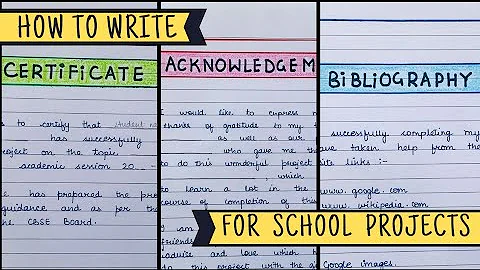 HOW TO WRITE
CERTIFICATE
s to certify that student na
has successfully
roject on the topic
academic session 20
e has prepared the pro
guidance and as per
the CBSE Board.
ACKNOWLEDGEM
I would like to express m
thanks of gratitude to my t
as well as our
who gave me th
to do this wonderful project
, which
to learn a lot in the
course of completion of this
I am
friends
advise and love which h
to this project with the gi
BIBLIOGRAPHY
successfully completing my
ave taken help from the
site links :-
www. google. com
www. wikipedia. com
Google Images.
FOR SCHOOL PROJECTS